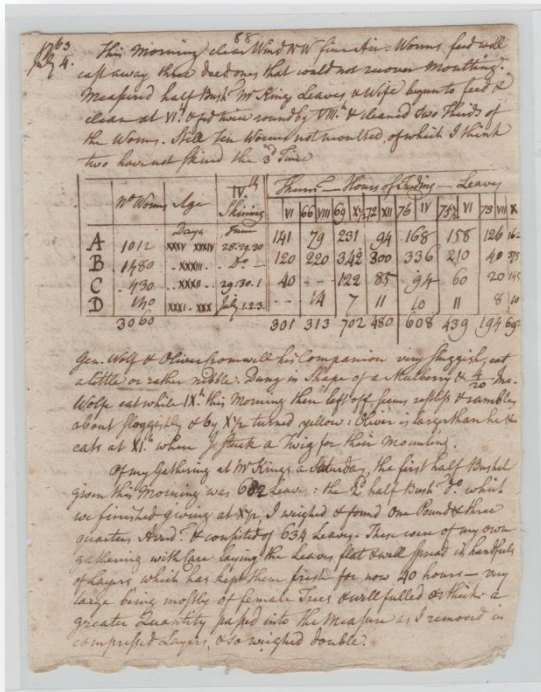 88
1763
July 4.
This Morning clear Wind NW fine Air. Worms feed well
cast away three dead ones that could not recover Moulting.
Measured half Bush.l Mr Kings Leaves & Wife begun to feed &
clean at VI.h & fed twice round by VIII.h & cleaned two Thirds of
the Worms. Still Ten Worms not moulted, of which I think
two have not skined the 3.d Time
IV.th Therm.r — Hours of Feeding — Leaves
No Worms Age Skining VI 66 VIII 69 X½ 72 XII 76 IV 75½ VI 73 VII X
Days June
A 1012 XXXV XXXIV 28.29.30 141 79 231 94 168 158 126 162
B 1480 XXXIII Do — 120 220 342 300 336 210 40 375
C 430 XXXII 29.30.1 40 - - 122 85 94 60 20 145
D 140 XXXI XXX July 1.2.3. - - 14 7 11 10 11 8 10
3060 301 313 702 480 608 439 194 692
Gen. Wolf & Oliver Cromwell his Companion very sluggish, eat
a little or rather nibble. Dung in Shape of a Mulberry & 4/20 In.a
Wolfe eat while IX.h this Morning then left off, seems restless & rambles
about sloggishly & by X½ turned yellow: Oliver is larger than he &
eats at XI.h when I stuck a Twig for their Mounting.
Of my Gathering at Mr Kings a Saturday, the first half Bushel
given this Morning was 682 Leaves: the 2.d half Bush.l d.o which
we finished giving at X½ I weighed & found One Pound & three
quarters Averd.s & consisted of 634 Leaves. These were of my own
gathering with Care laying the Leaves flat & well spread in handfuls
of Layers which has kept them fresh for now 40 hours — very
large being mostly of female Trees & well fulled & think a
greater Quantity passed into the Measure as I removed in
compressed Layers, & so weighed double.